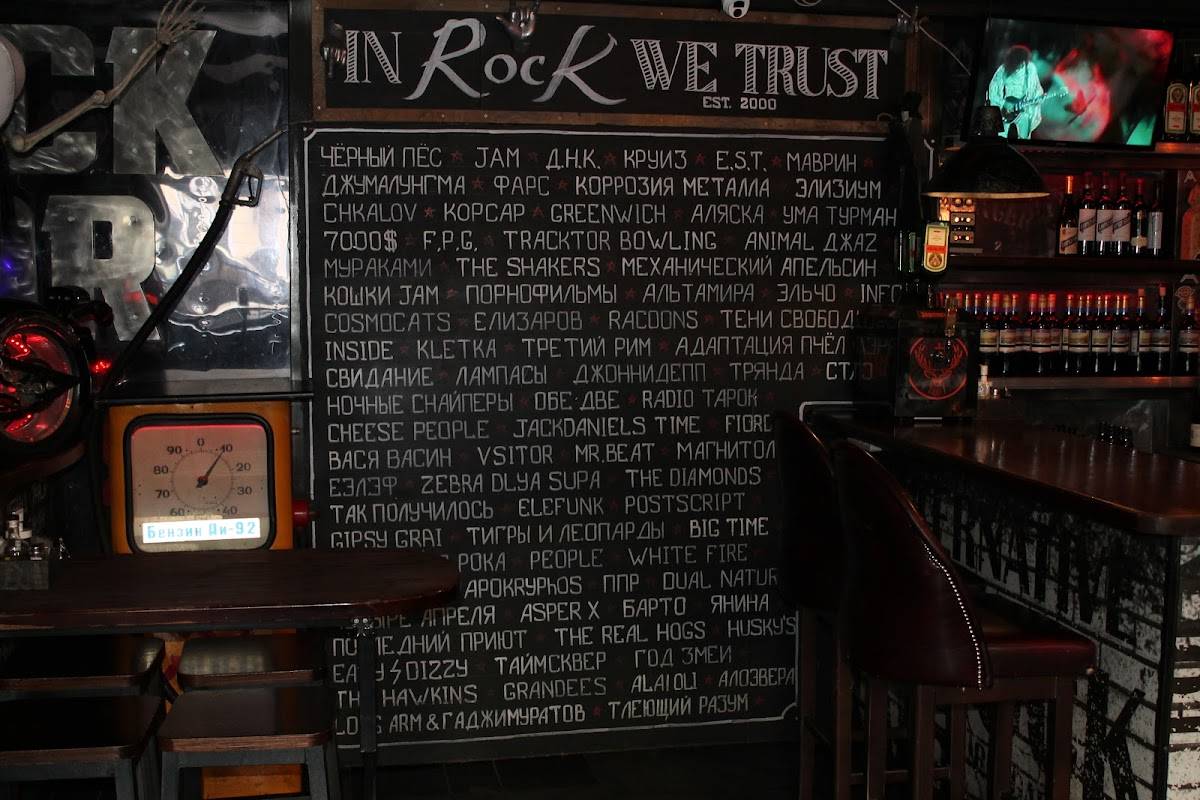 IN RocK WE TRUST
EST. 2000
ЧЁРНЫЙ ПЁС JAM Д.Н.К. КРУИЗ E.S.T. МАВРИН
ДЖУМАЛУНГМА ФАРС КОРРОЗИЯ МЕТАЛЛА ЭЛИЗИУМ
CHKALOV КОРСАР GREENWICH АЛЯСКА УМА ТУРМАН
7000$ F.P.G. TRACKTOR BOWLING ANIMAL ДЖАZ
МУРАКАМИ THE SHAKERS МЕХАНИЧЕСКИЙ АПЕЛЬСИН
КОШКИ JAM ПОРНОФИЛЬМЫ АЛЬТАМИРА ЭЛЬЧО
COSMOCATS ЕЛИЗАРОВ RACOONS ТЕНИ
INSIDE KLETKA ТРЕТИЙ РИМ АДАПТАЦИЯ ПЧЁЛ
СВИДАНИЕ ЛАМПАСЫ ДЖОННИДЕПП ТРЯНДА
НОЧНЫЕ СНАЙПЕРЫ ОБЕ-ДВЕ RADIO ТАРОК
CHEESE PEOPLE JACKDANIELS TIME
ВАСЯ ВАСИН VSITOR MR.BEAT
ЕЭЛЭФ ZEBRA DLYA SUPA THE DIAMONDS
ТАК ПОЛУЧИЛОСЬ ELEFUNK POSTSCRIPT
GIPSY GRAI ТИГРЫ И ЛЕОПАРДЫ BIG TIME
РОКА PEOPLE WHITE FIRE
APOKRYPHOS ППР DUAL
АПРЕЛЯ ASPER X БАРТО ЯНИНА
ПОСЛЕДНИЙ ПРИЮТ THE REAL HOGS HUSKY'S
EASY DIZZY ТАЙМСКВЕР ГОД ЗМЕИ
THE HAWKINS GRANDEES ALAI OLI АЛОЭВЕРА
LONG ARM & ГАДЖИМУРАТОВ ТЛЕЮЩИЙ РАЗУМ
0
90 10
80 20
70 30
60 40
Бензин Аи-92